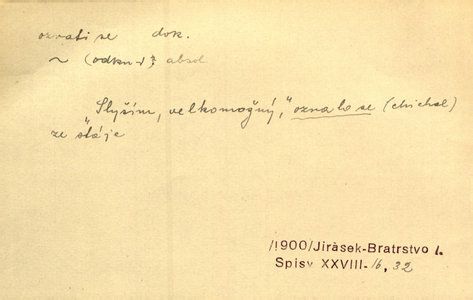 ozvati se dok.
~ (odkud?) absol
"Slyším, velkomožný," ozvalo se (chichol)
ze stáje
/1900/Jirásek-Bratrstvo I.
Spisy XXVIII-16, 32